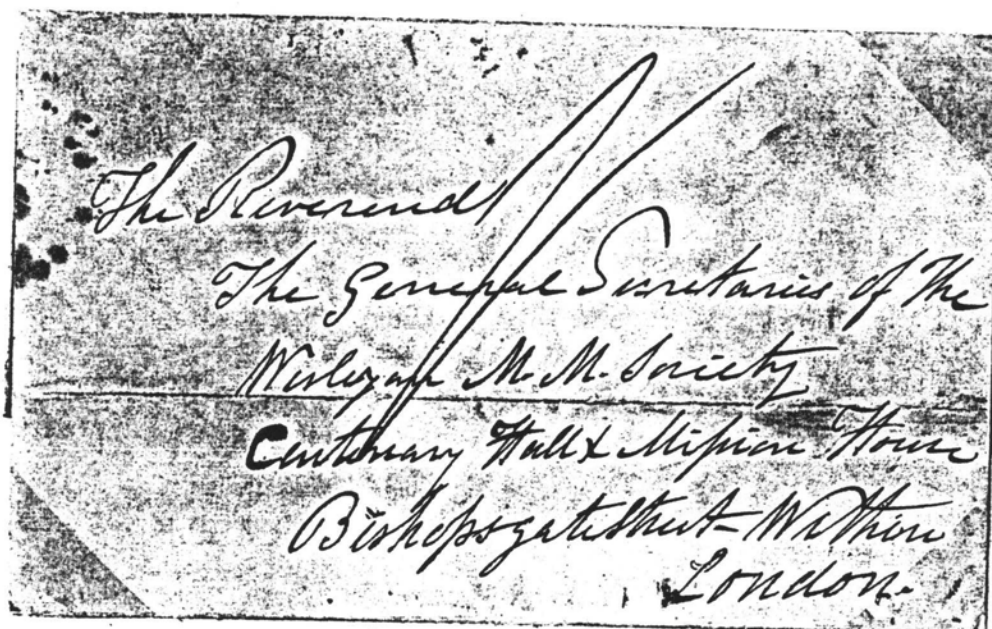 The Reverend
The General Secretaries of the
Wesleyan M. M. Society
Centenary Hall & Mission House
Bishopsgate Street - Within
London.